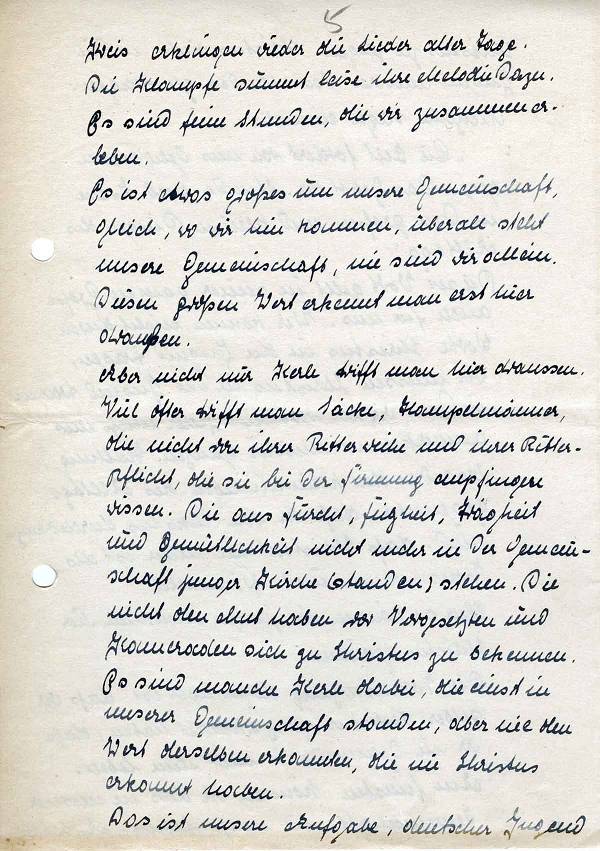 5
Kreis erklingen wieder die Lieder alter Tage.
Die Klampfe summt leise ihre Melodie dazu.
Es sind feine Stunden, die wir zusammen er-
leben.
Es ist etwas großes um unsere Gemeinschaft,
gleich, wo wir hin kommen, überall steht
unsere Gemeinschaft, nie sind wir allein.
Diesen großen Wert erkennt man erst hier
draußen.
Aber nicht nur Kerle trifft man hier draussen.
Viel öfter trifft man Säcke, Hampelmänner,
die nicht von ihrer Ritterweihe und ihrer Ritter-
pflicht, die sie bei der Firmung empfingen
wissen. Die aus Furcht, Feigheit, Trägheit
und Gemütlichkeit nicht mehr in der Gemein-
schaft junger Kirche (standen) stehen. Die
nicht den Mut haben vor Vorgesetzten und
Kameraden sich zu Christus zu bekennen.
Es sind manche Kerle dabei, die einst in
unserer Gemeinschaft standen, aber nie den
Wert derselben erkannten, die nie Christus
erkannt haben.
Das ist unsere Aufgabe, deutscher Jugend